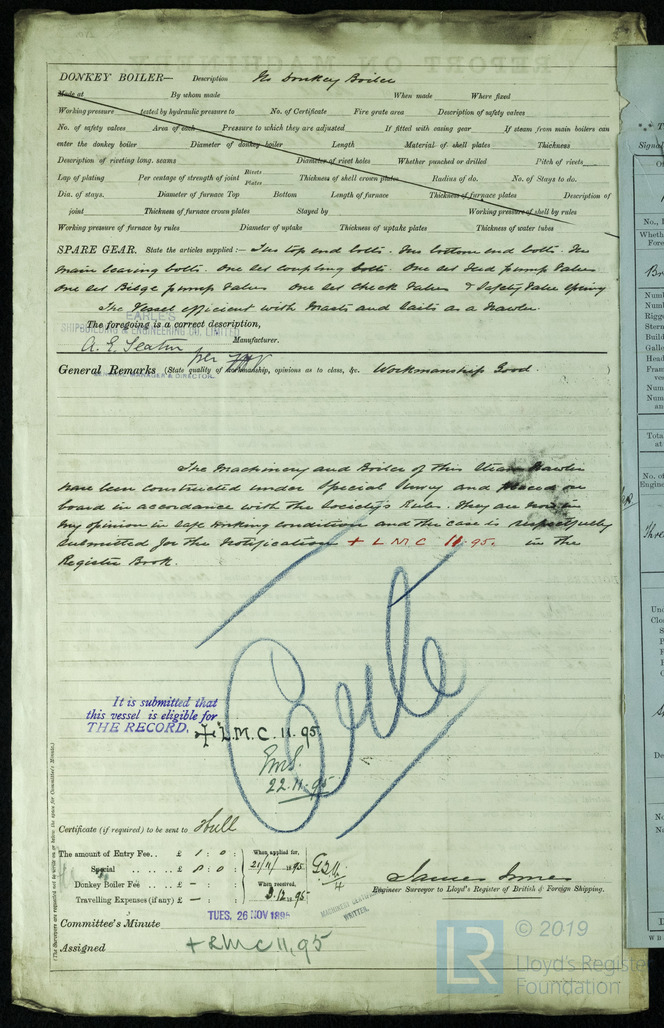 DONKEY BOILER— Description No Donkey Boiler
Made at By whom made When made Where fixed
Working pressure tested by hydraulic pressure to No. of Certificate Fire grate area Description of safety valves
No. of safety valves Area of each Pressure to which they are adjusted If fitted with easing gear If steam from main boilers can
enter the donkey boiler Diameter of donkey boiler Length Material of shell plates Thickness
Description of riveting long. seams Diameter of rivet holes Whether punched or drilled Pitch of rivets
Lap of plating Per centage of strength of joint Rivets Plates Thickness of shell crown plates Radius of do. No. of Stays to do.
Dia. of stays. Diameter of furnace Top Bottom Length of furnace Thickness of furnace plates Description of
joint Thickness of furnace crown plates Stayed by Working pressure of shell by rules
Working pressure of furnace by rules Diameter of uptake Thickness of uptake plates Thickness of water tubes
SPARE GEAR. State the articles supplied :— Two top end bolts. Two bottom end bolts. Two
main bearing bolts. One set coupling bolts One set feed pump valves
One set Bilge pump valves One set check valves & Safety Valve Spring
The Vessel efficient with Masts and Sails as a Trawler.
The foregoing is a correct description,
EARLE'S
SHIPBUILDING & ENGINEERING CO. LIMITED
A. E. Seaton Manufacturer.
per
MANAGER & DIRECTOR.
General Remarks (State quality of workmanship, opinions as to class, &c. Workmanship Good. )
The Machinery and Boiler of this Steam Trawler
have been constructed under Special Survey and placed on
board in accordance with the Society's Rules. They are now in
my opinion in safe working condition and the case is respectfully
submitted for the Notification + L M C 11.95. in the
Register Book.
It is submitted that
this vessel is eligible for
THE RECORD. + L.M.C. 11.95.
22.11.95
Certificate (if required) to be sent to Hull
The amount of Entry Fee.. £ 1 : 0 : When applied for,
Special £ 8 : 0 : 21/11/1895
Donkey Boiler Fee £ — : When received,
Travelling Expenses (if any) £ — : 3.12.95
James Innes
Engineer Surveyor to Lloyd's Register of British & Foreign Shipping.
MACHINERY CERTIFICATE
WRITTEN.
Committee's Minute TUES. 26 NOV 1895
Assigned + LMC 11,95
© 2019
LR Lloyd's Register
Foundation